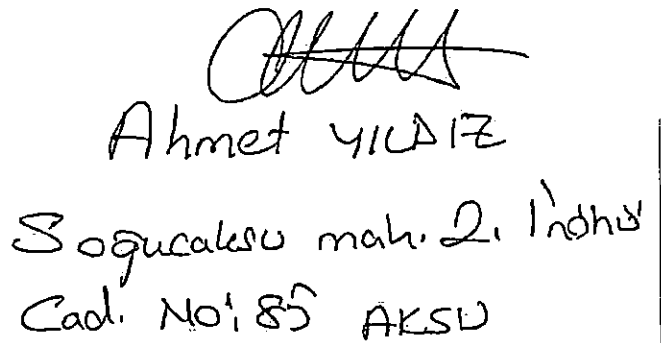 Ahmet YILDIZ
Soğucaksu mah. 2. İnönü
Cad. No: 85 AKSU